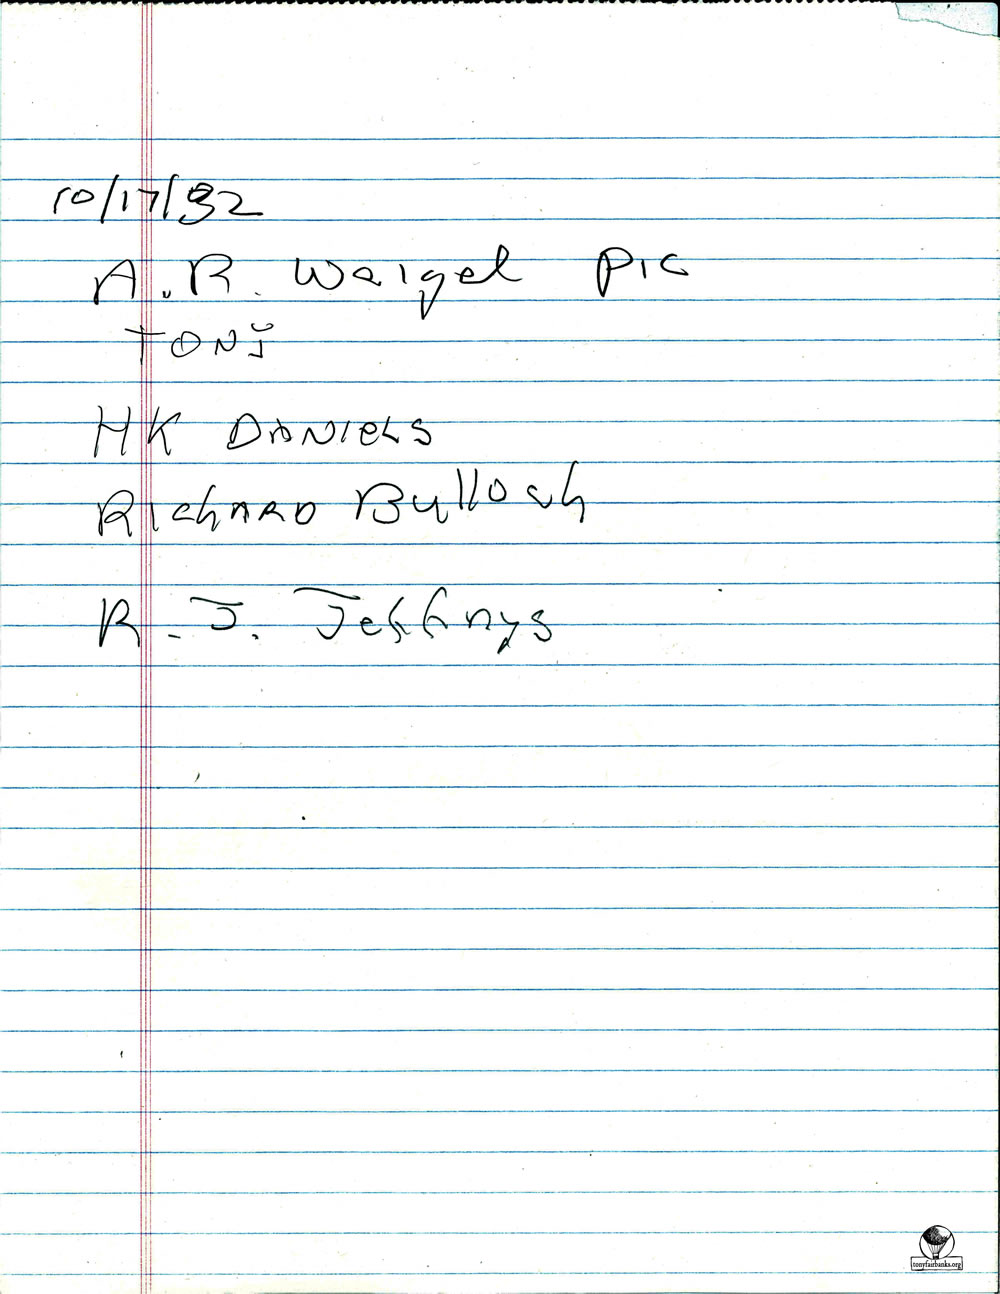 10/17/82
A.R. Waigel PIC
TONY
HK DANIELS
RICHARD Bulloch
R. J. Jeffrys
tonyfairbanks.org